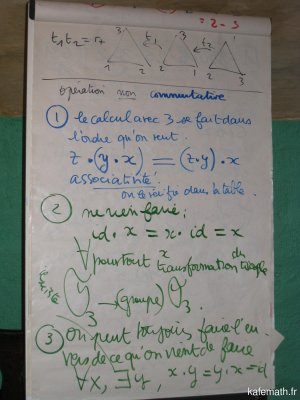 = 2 - 3
t₁t₂ = r₊
3 t₁ 3 t₂ 1
1 2 2 1 2 3
opération non commutative
① le calcul avec 3 se fait dans
l'ordre qu'on veut.
z • (y • x) = (z • y) • x
associativité.
on le vérifie dans la table.
② ne rien faire ;
id • x = x • id = x
∀ pour tout x transformation du triangle
→ (groupe) 𝒮₃
③ on peut toujours faire l'en
vers de ce qu'on vient de faire
∀x, ∃y, x • y = y • x = id
kafemath.fr